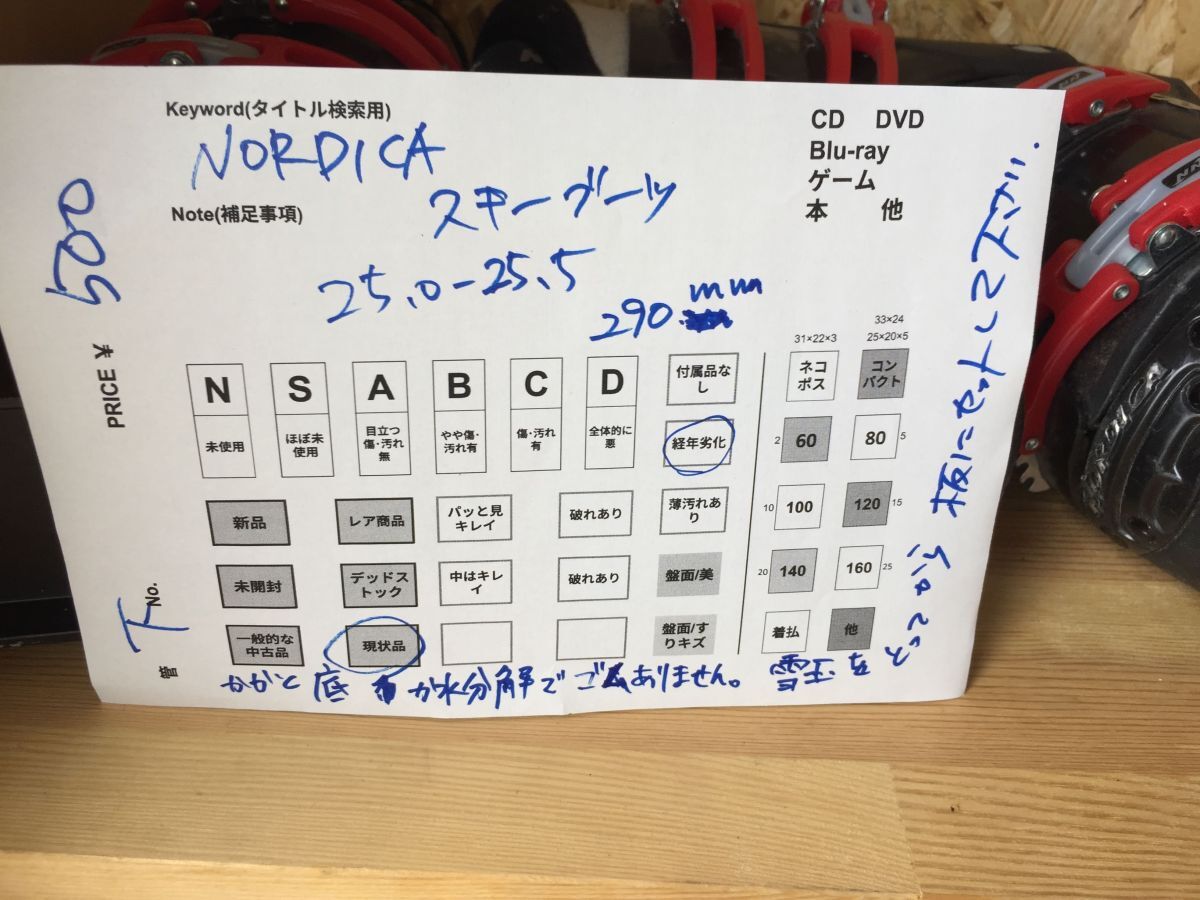 Keyword(タイトル検索用)
NORDICA
Note(補足事項)
スキーブーツ
25.0-25.5
290 mm
CD DVD
Blu-ray
ゲーム
本 他
PRICE ¥ 500
N S A B C D
未使用 ほぼ未使用 目立つ傷・汚れ無 やや傷・汚れ有 傷・汚れ有 全体的に悪
付属品なし
経年劣化
新品 レア商品 パッと見キレイ 破れあり 薄汚れあり
未開封 デッドストック 中はキレイ 破れあり 盤面/美
一般的な中古品 現状品 盤面/すりキズ
31×22×3 33×24
25×20×5
ネコポス コンパクト
2 60 80 5
10 100 120 15
20 140 160 25
着払 他
管 No. 下
かかと底が水分解でゴムありません。雪玉を
板にセットして下さい.
NORDICA